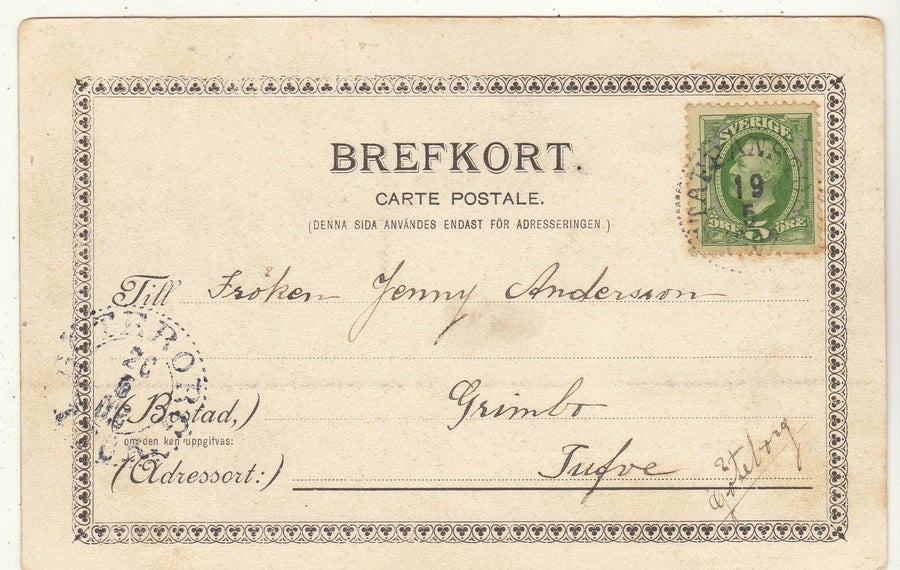 BREFKORT.
CARTE POSTALE.
(DENNA SIDA ANVÄNDES ENDAST FÖR ADRESSERINGEN.)
SVERIGE
19
5
ÖRE 5 ÖRE
Till Fröken Jenny Andersson
20
5
(Bostad,) Grimbo
om den kan uppgifvas:
(Adressort:) Tufve
Göteborg